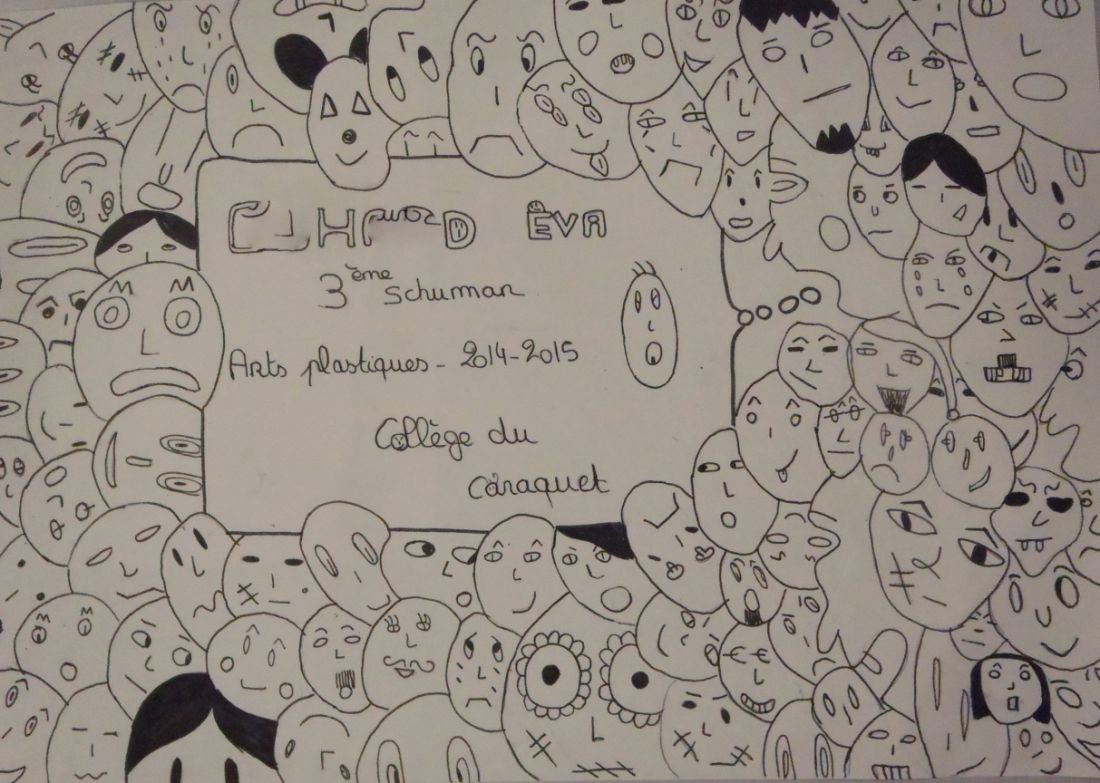 ÈVA
3ème Schuman
Arts plastiques - 2014-2015
Collège du
Caraquet